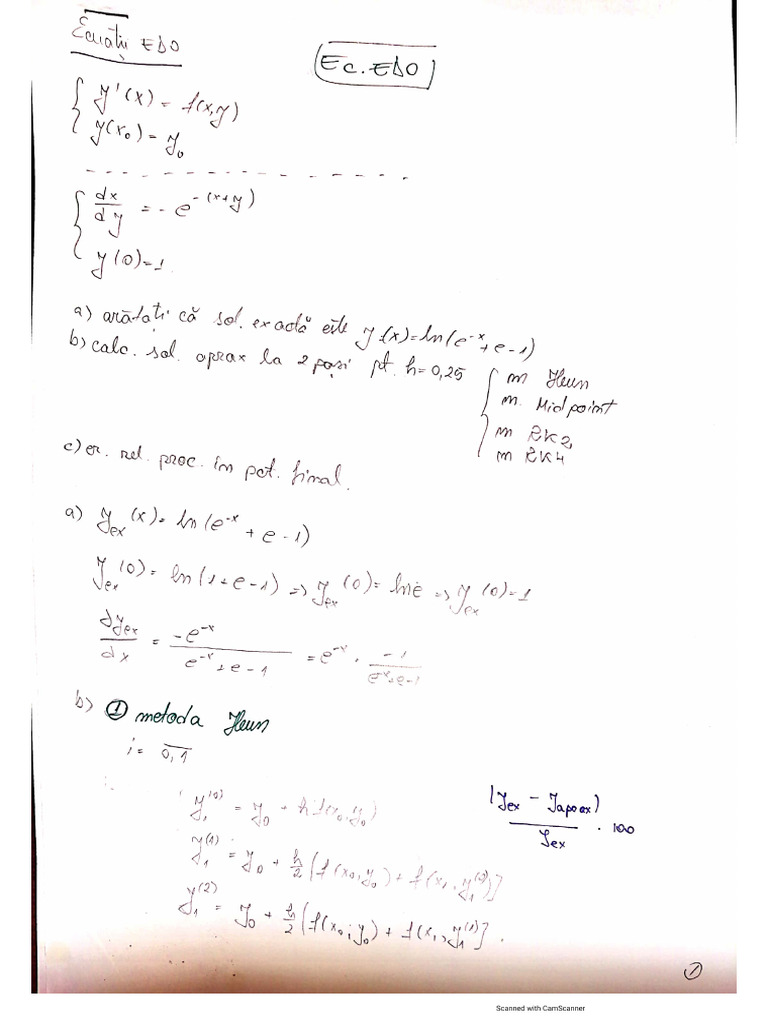 Ecuații EDO
Ec. EDO
{ y'(x) = f(x,y)
y(x₀) = y₀
- - - - - - - - - - - - - - - -
{ dx/dy = - e^-(x+y)
y(0)=1
a) arătați că sol. exactă este y(x)=ln(e^-x + e - 1)
b) calc. sol. aprox la 2 pași pt. h=0,25 { m Heun
m. Midpoint
m RK2
m RK4
c) er. rel. proc. în pct. final.
a) y_ex(x) = ln(e^-x + e - 1)
y_ex(0) = ln(1+e-1) => y_ex(0) = ln e => y_ex(0)=1
dy_ex/dx = -e^-x / (e^-x + e - 1) = e^-x · -1/(e^-x+e-1)
b) ① metoda Heun
i = 0,1
y₁^(0) = y₀ + h f(x₀,y₀)
|y_ex - y_aprox| / y_ex · 100
y₁^(1) = y₀ + h/2 [f(x₀,y₀) + f(x₁,y₁^(0))]
y₁^(2) = y₀ + h/2 [f(x₀;y₀) + f(x₁,y₁^(1))].
①
Scanned with CamScanner